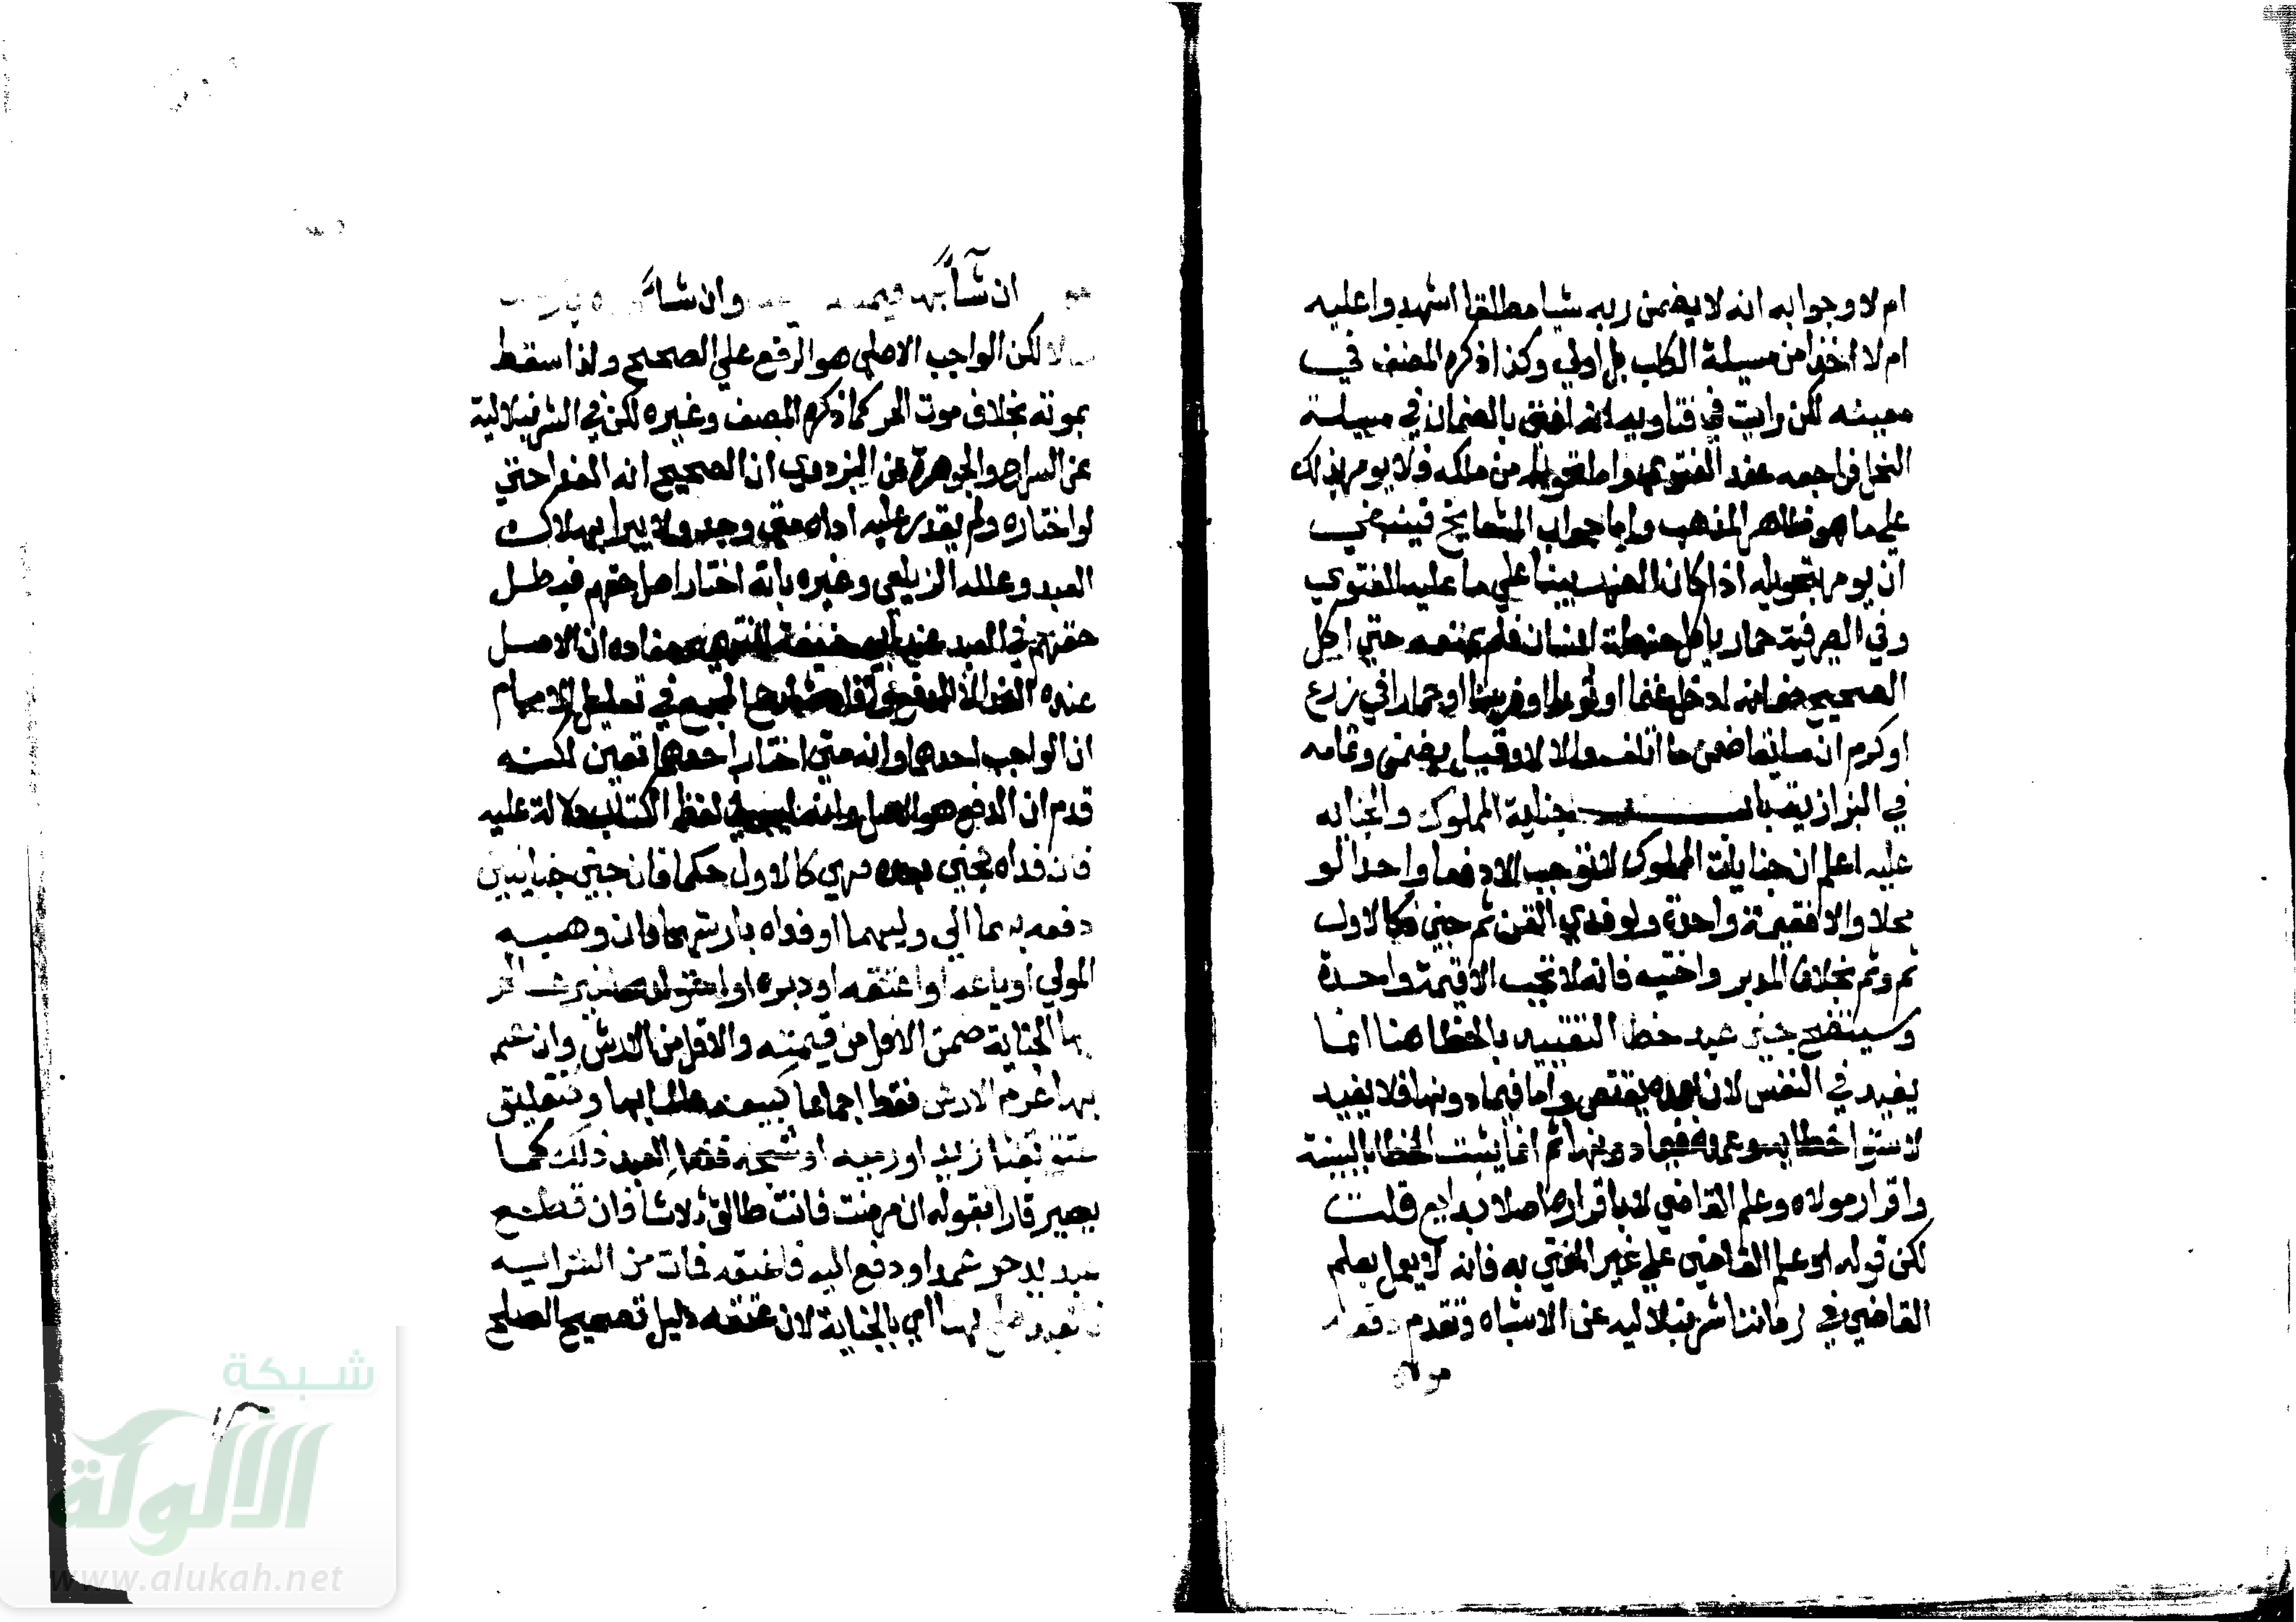 ام لا وجوابه انه لا يضمن ربه شيا مطلقا اشهدوا عليه
ام لا اخذا من مسيلة الكلب بل اولي وكذا ذكره المصنف في
معينه لكن رايت في فتاويه انه افتي بالضمان في مسيلة
النحل فراجعه عند الفتوي واما تحويله من ملكه فلا يومر بذلك
علي ما هو ظاهر المذهب واما جواب المشايخ فينبغي
ان يومر بتحويله اذا كان الضرر بينا علي ما عليه الفتوي
وفي الصرفية حمار ياكل حنطة انسان فلم يمنعه حتي اكل
الصحيح ضمانه ادخل غنما او ثورا او فرسا او حمارا في زرع
او كرم ان سايقا ضمن ما اتلف والا لا وقيل يضمن وتمامه
في البزازية باب جناية المملوك والجناية
عليه اعلم ان جنايات المملوك لا توجب الا دفعا واحدا لو
محلا والا فقيمة واحدة ولو فدي القن ثم جني فكالاول
ثم وثم بخلاف المدبر واختيه فانه لا تجب الا قيمة واحدة
وسيتضح جني عبد خطا التقييد بالخطا هنا انما
يفيد في النفس لان بعمده يقتص واما فيما دونها فلا يفيد
لاستوا خطايه وعمده فيما دونها ثم انما يثبت الخطا بالبينة
واقرار مولاه وعلم القاضي لا باقراره اصلا بدايع قلت
لكن قوله او علم القاضي علي غير المفتي به فانه لا يعمل بعلم
القاضي في زماننا شرنبلاليه عن الاشباه وتقدم دفعه
مولاه
ان شا وان شا
لكن الواجب الاصلي هو الدفع علي الصحيح ولذا سقط
بموته بخلاف موت الحر كما ذكره المصنف وغيره لكن في الشرنبلالية
عن السراج والجوهرة عن البزدوي ان الصحيح انه الفدا حتي
لو اختاره ولم يقدر عليه اداه متي وجد ولا يبرا بهلاك
العبد وعلله الزيلعي وغيره بانه اختار اصل حقهم فبطل
حقهم في العبد عند ابي حنيفة انتهي ومفاده ان الاصل
عنده الفدا لا الدفع شارح المجمع في تعليل الامام
ان الواجب احدهما وانه متي اختار احدهما تعين لكنه
قدم ان الدفع هو الاصل وانه ليس في لفظ الكتاب دلالة عليه
فان فداه فجني بعده فهي كالاول حكما فان جني جنايتين
دفعه بهما الي وليهما او فداه بارشهما فان وهبه
المولي او باعه او اعتقه او دبره او استولدها غير عالم
بها الجناية ضمن الاقل من قيمته والاقل من الارش وان علم
بها غرم الارش فقط اجماعا كبيعه عالما بها وكتعليق
عتقه بقتل زيد او رميه او شجه ففعل العبد ذلك كما
يصير فارا بقوله ان مرضت فانت طالق ثلاثا فان قطع
عبد يد حر عمدا ودفع اليه فاعتقه فمات من السراية
فالعبد صلح بها اي بالجناية لان عتقه دليل تصحيح الصلح
شبكة
الألوكة
www.alukah.net